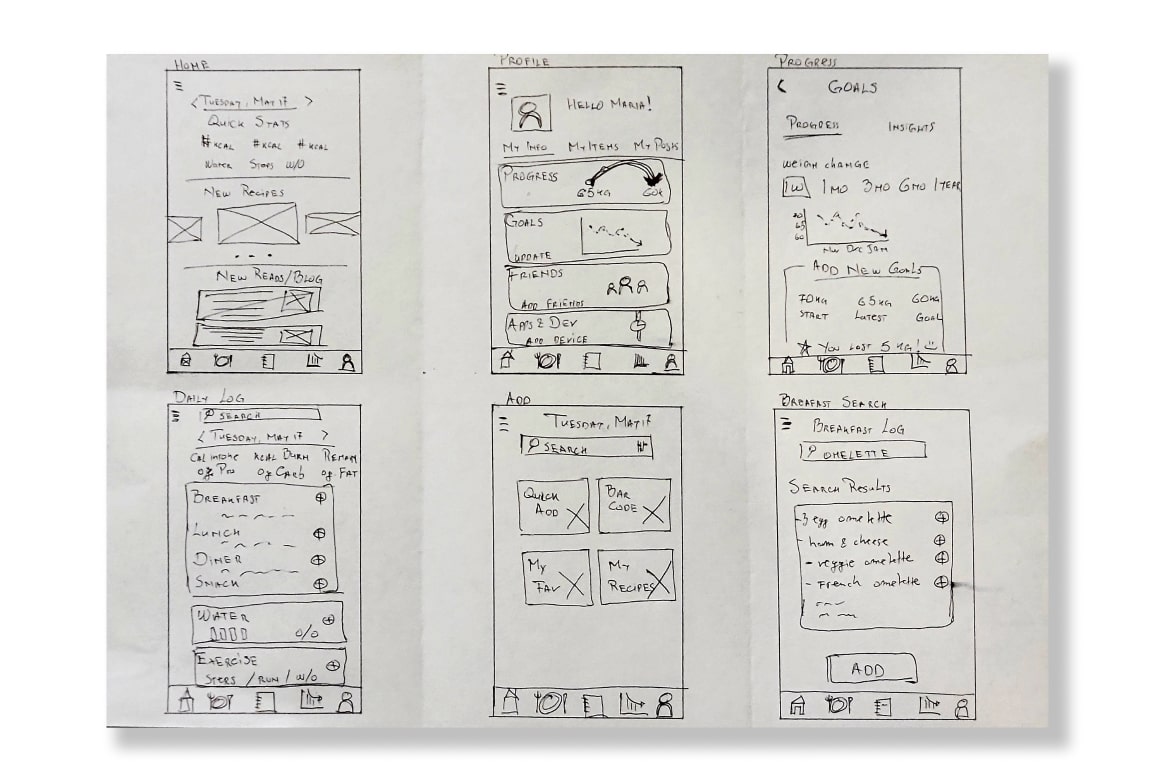 HOME
< TUESDAY, MAY 17 >
QUICK STATS
#KCAL #KCAL #KCAL
WATER STEPS W/O
NEW RECIPES
NEW READS/BLOG
PROFILE
HELLO MARIA!
MY INFO MY ITEMS MY POSTS
PROGRESS
65KG 60K
GOALS
UPDATE
FRIENDS
ADD FRIENDS
APPS & DEV
ADD DEVICE
PROGRESS
< GOALS
PROGRESS INSIGHTS
WEIGH CHANGE
1W 1MO 3MO 6MO 1YEAR
70
65
60
Nov Dec Jan
ADD NEW GOALS
70KG 65KG 60KG
START LATEST GOAL
YOU LOST 5 KG!
DAILY LOG
SEARCH
< TUESDAY, MAY 17 >
CAL INTAKE KCAL BURN REMAIN
0g PRO 0g CARB 0g FAT
BREAKFAST
LUNCH
DINER
SNACK
WATER
0/0
EXERCISE
STEPS / RUN / W/O
ADD
TUESDAY, MAY 17
SEARCH
QUICK ADD
BAR CODE
MY FAV
MY RECIPES
BREAFAST SEARCH
BREAKFAST LOG
OMELETTE
SEARCH RESULTS
-3 egg omelette
- ham & cheese
- veggie omelette
- French omelette
ADD